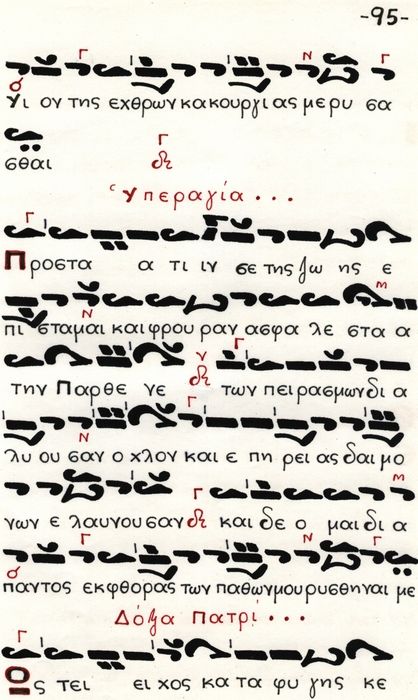 -95-
Υι ου της εχθρων κακουργι ας με ρυ σα
σθαι
Ὑπεραγία...
Προστα α τι ιν σε της ζω ης ε
πι σταμαι και φρου ραν ασφα λε στα α
την Παρθε νε των πειρασμων δι α
λυ ου σαν ο χλον και ε πη ρει ας δαι μο
νων ε λαυνουσαν και δε ο μαι δι α
παντος εκ φθορας των παθων μου ρυσθηναι με
Δόξα Πατρί...
Ος τει ει χος κα τα φυ γης κε